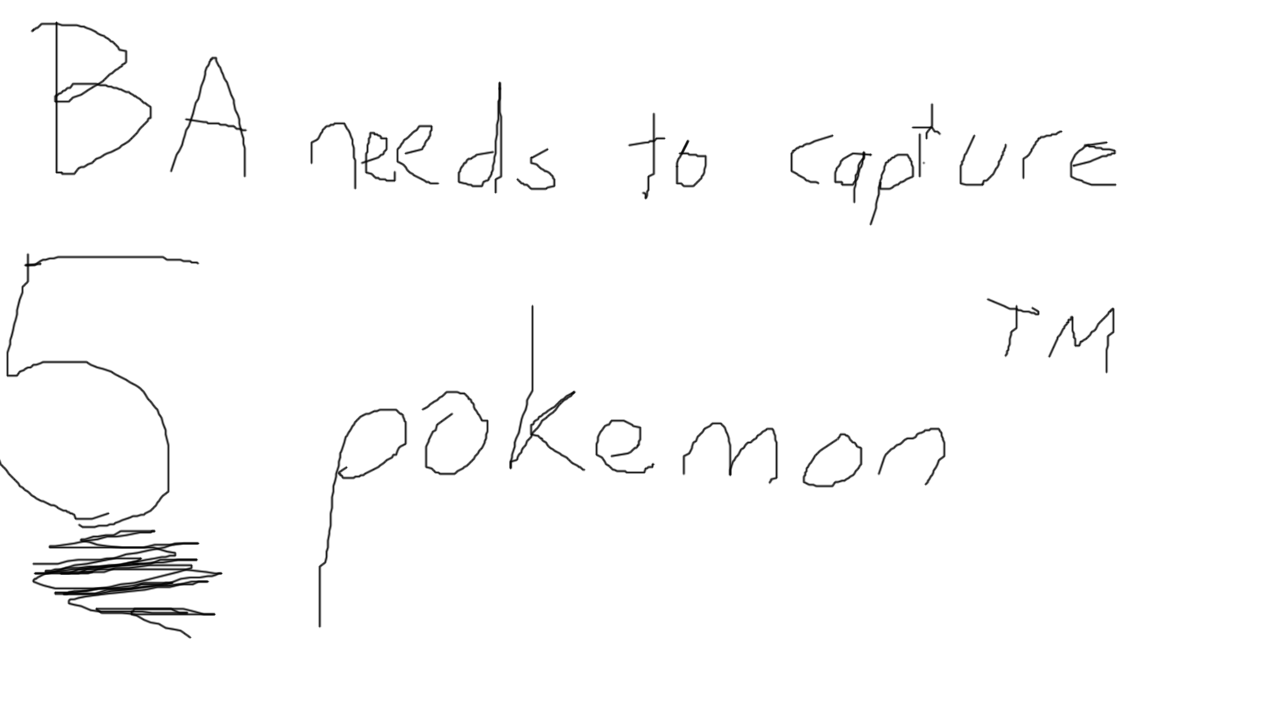 BA needs to capture
5 pokemon ™